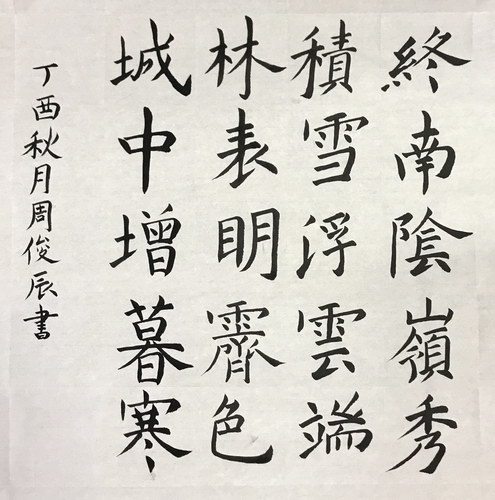 終南陰嶺秀
積雪浮雲端
林表明霽色
城中增暮寒
丁酉秋月周俊辰書